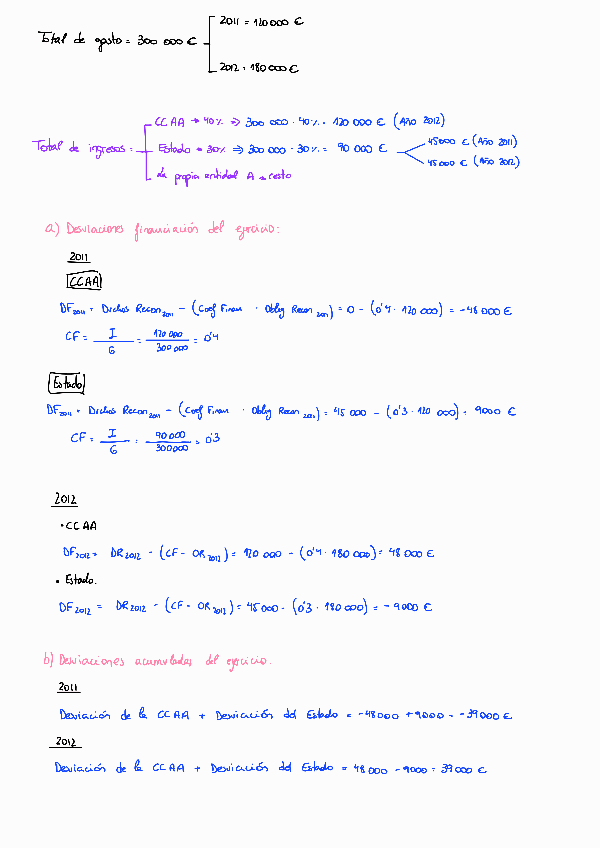 2011 = 120 000 €
Total de gasto = 300 000 €
2012 = 180 000 €
CCAA → 40% ⇒ 300 000 · 40% = 120 000 € (Año 2012)
Total de ingresos = Estado = 30% ⇒ 300 000 · 30% = 90 000 €
45000 € (Año 2011)
45000 € (Año 2012)
La propia entidad A = resto
a) Desviaciones financiación del ejercicio:
2011
CCAA
DF2011 = Drchos Recon 2011 - (Coef Finan · Oblig Recon 2011) = 0 - (0'4 · 120 000) = -48 000 €
CF = I / G = 120 000 / 300 000 = 0'4
Estado
DF2011 = Drchos Recon 2011 - (Coef Finan · Oblig Recon 2011) = 45 000 - (0'3 · 120 000) = 9000 €
CF = I / G = 90 000 / 300 000 = 0'3
2012
• CCAA
DF2012 = DR2012 - (CF - OR2012) = 120 000 - (0'4 · 180 000) = 48 000 €
• Estado.
DF2012 = DR2012 - (CF - OR2012) = 45000 - (0'3 · 180 000) = -9000 €
b) Desviaciones acumuladas del ejercicio.
2011
Desviación de la CCAA + Desviación del Estado = -48000 + 9000 = -39000 €
2012
Desviación de la CCAA + Desviación del Estado = 48 000 - 9000 = 39 000 €